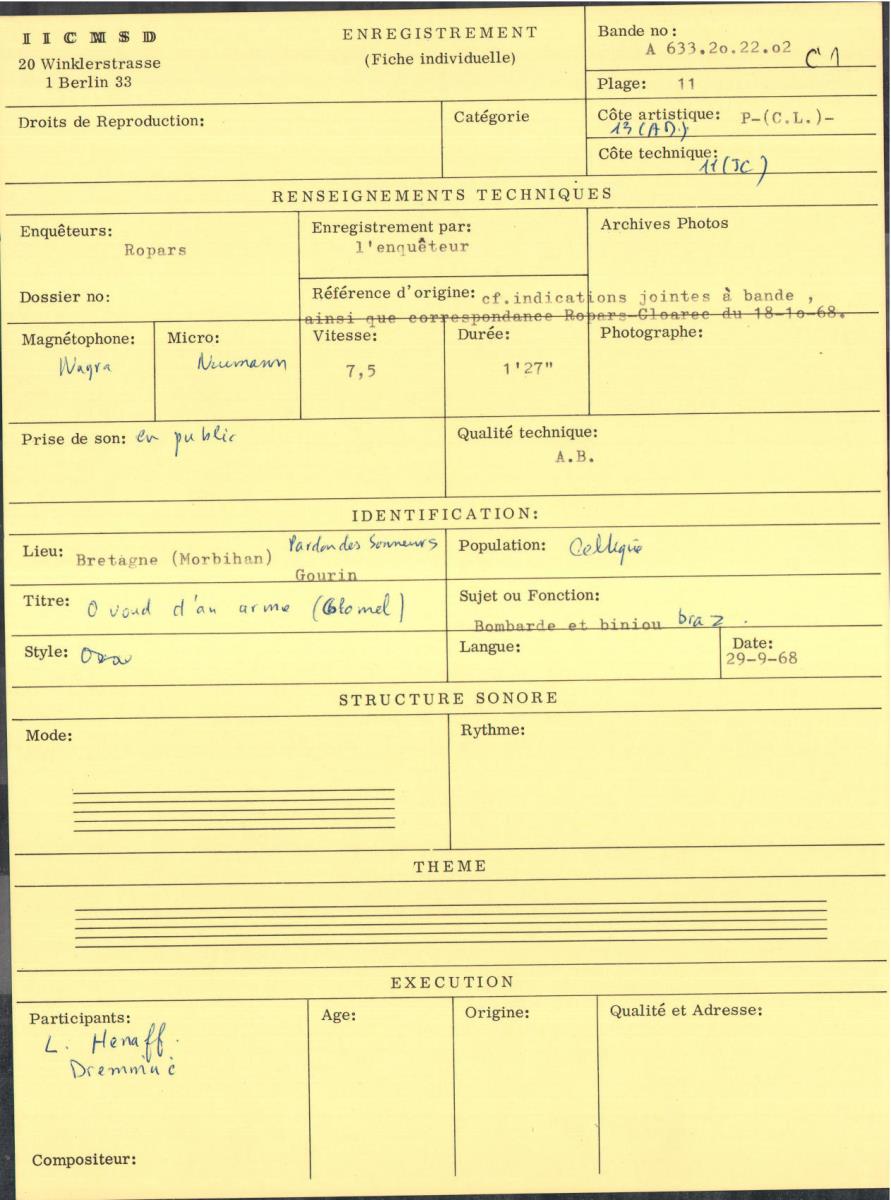 IICMSD
20 Winklerstrasse
1 Berlin 33
ENREGISTREMENT
(Fiche individuelle)
Bande no:
A 633.2o.22.o2 C 1
Plage: 11
Droits de Reproduction:
Catégorie
Côte artistique: P-(C.L.)-
13 (AD.)
Côte technique:
11 (JC)
RENSEIGNEMENTS TECHNIQUES
Enquêteurs:
Ropars
Dossier no:
Enregistrement par:
l'enquêteur
Référence d'origine: cf.indications jointes à bande ,
ainsi que correspondance Ropars-Gloarec du 18-1o-68.
Archives Photos
Magnétophone:
Nagra
Micro:
Neumann
Vitesse:
7,5
Durée:
1'27"
Photographe:
Prise de son: en public
Qualité technique:
A.B.
IDENTIFICATION:
Lieu: Bretagne (Morbihan) Pardon des Sonneurs
Gourin
Population: Celtique
Titre: O voud d'an arme (Glomel)
Sujet ou Fonction:
Bombarde et biniou braz.
Style:
Langue:
Date:
29-9-68
STRUCTURE SONORE
Mode:
Rythme:
THEME
EXECUTION
Participants:
L. Henaff.
Age:
Origine:
Qualité et Adresse:
Compositeur: